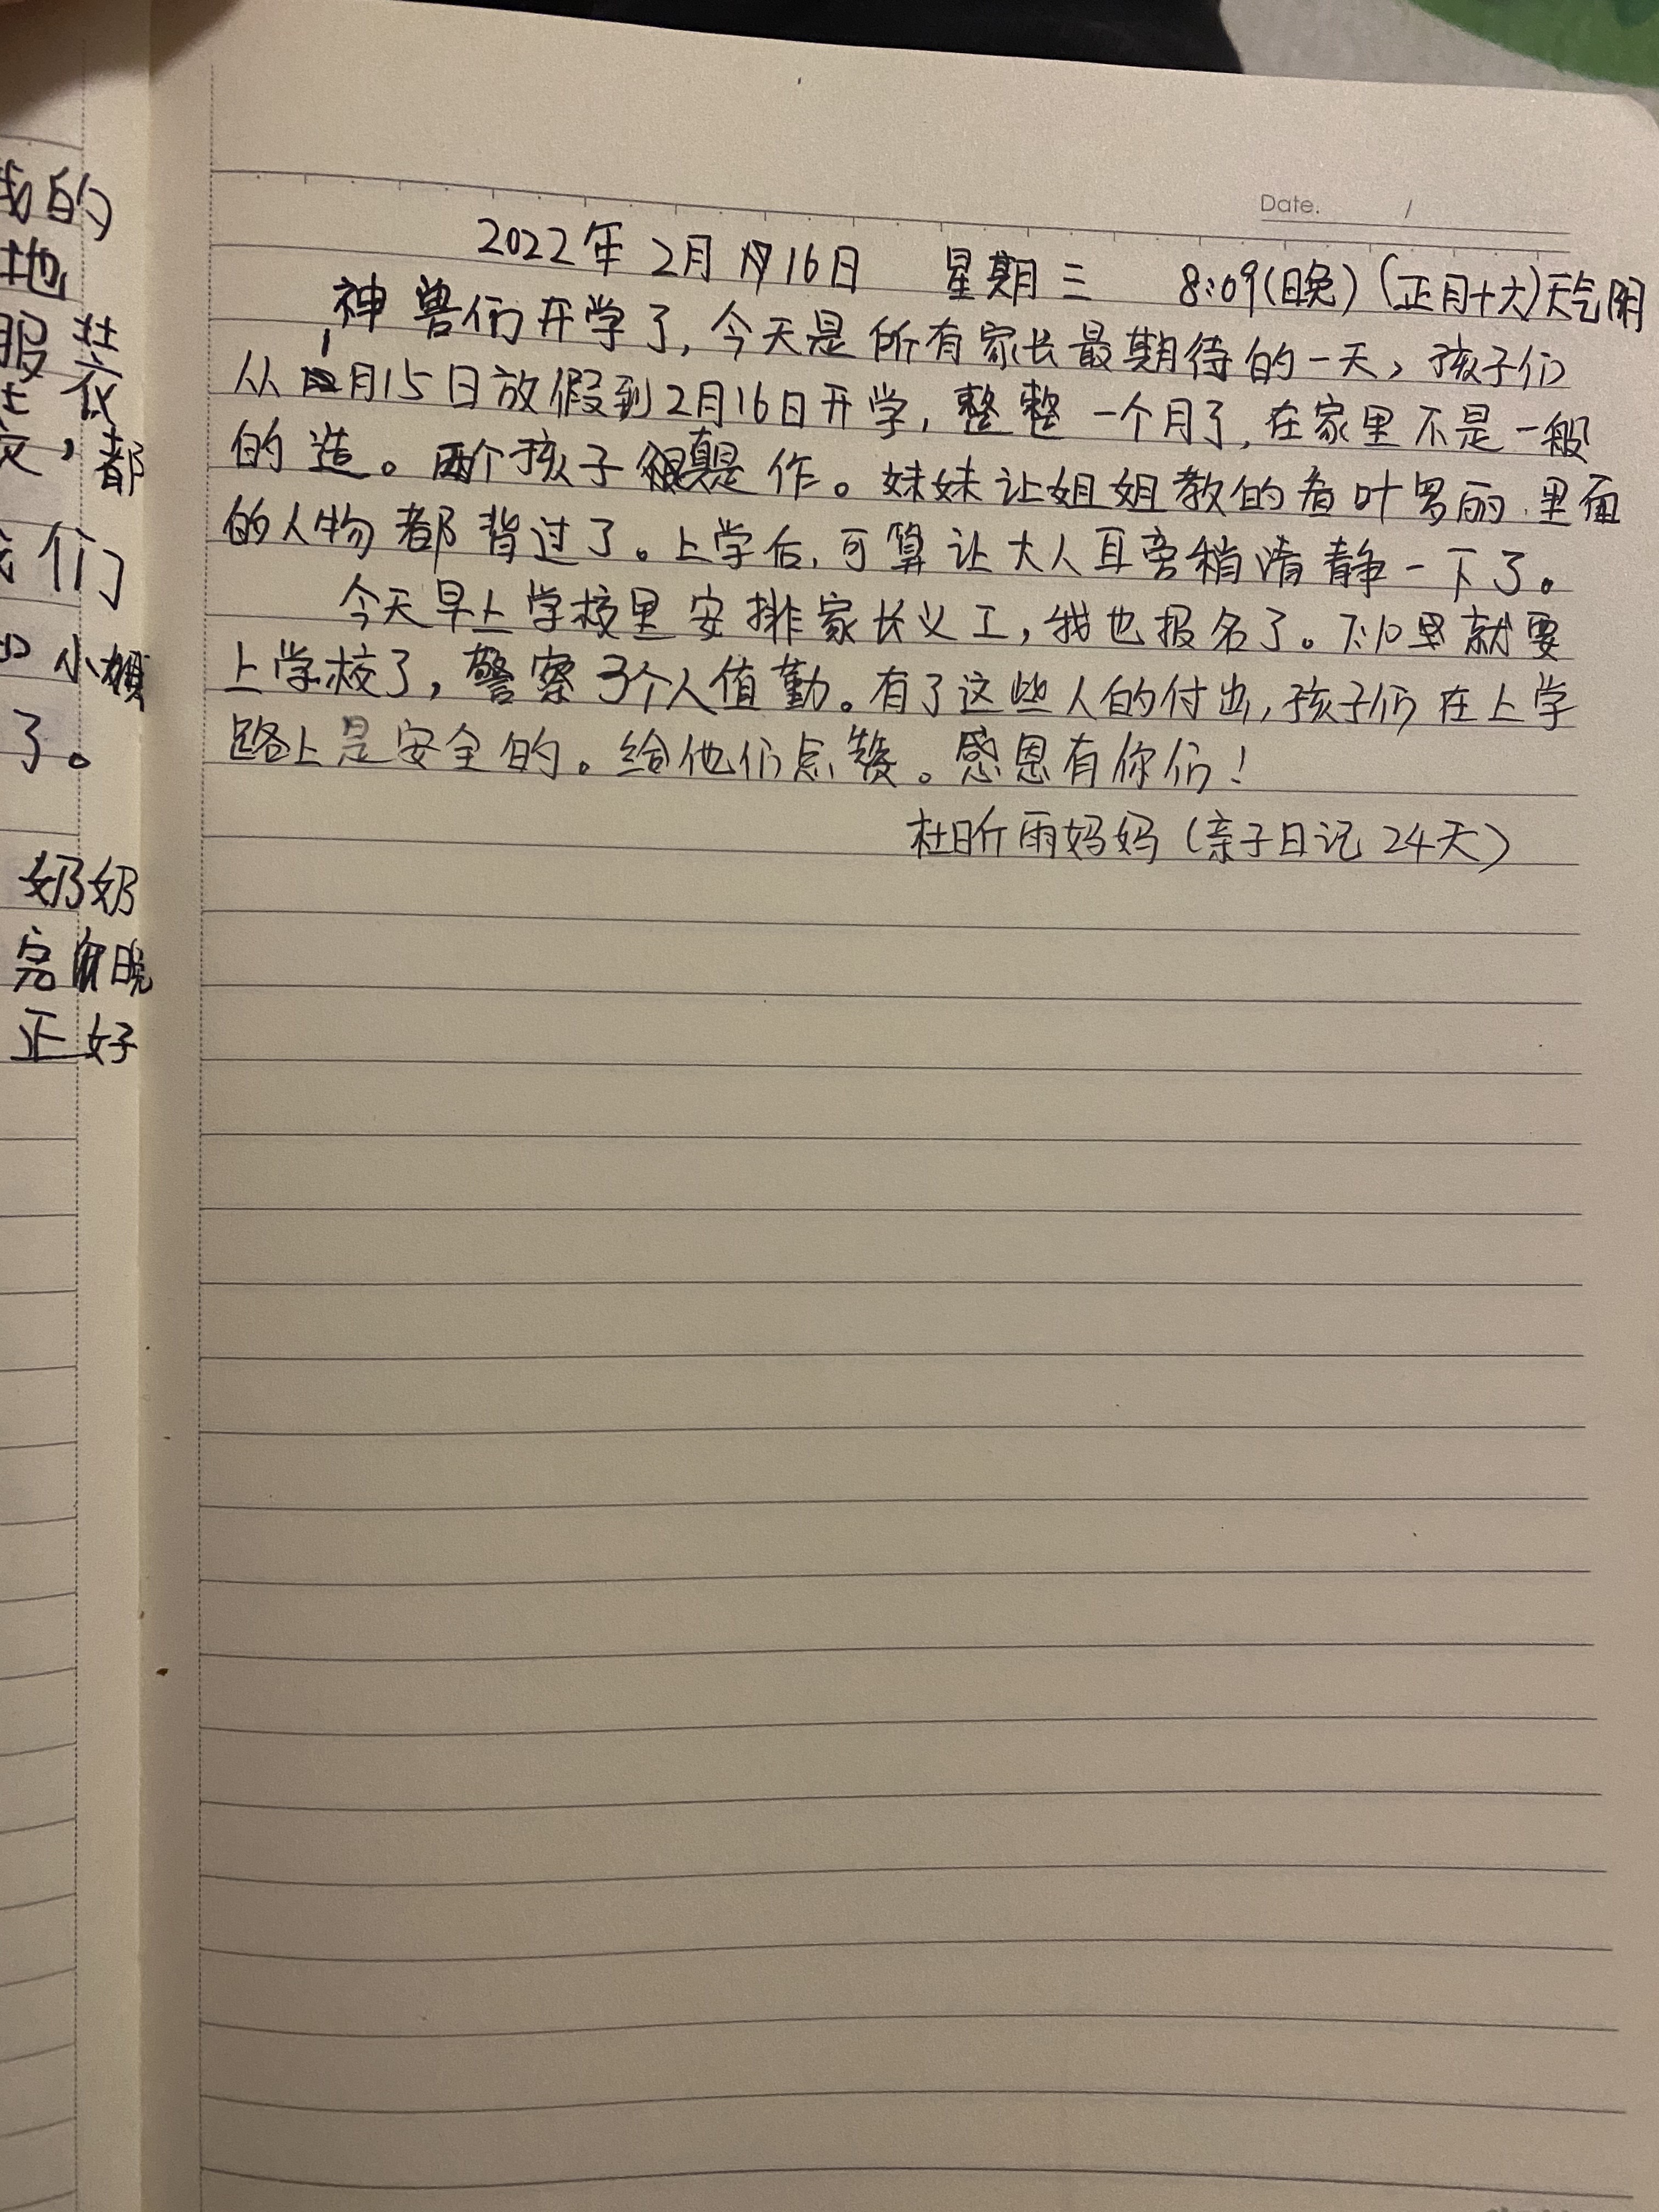 Date. /
2022年2月16日 星期三 8:09(晚)(正月十六)天气阴
神兽们开学了,今天是所有家长最期待的一天,孩子们
从1月15日放假到2月16日开学,整整一个月了,在家里不是一般
的造。两个孩子真是作。妹妹让姐姐教的看叶罗丽里面
的人物都背过了。上学后,可算让大人耳旁稍清静一下了。
今天早上学校里安排家长义工,我也报名了。不到就要
上学校了,警察3个人值勤。有了这些人的付出,孩子们在上学
路上是安全的。给他们点赞。感恩有你们!
杜昕雨妈妈(亲子日记24天)
我的
地
服装
衣
,都
我们
小姨
了。
奶奶
完 晚
正好